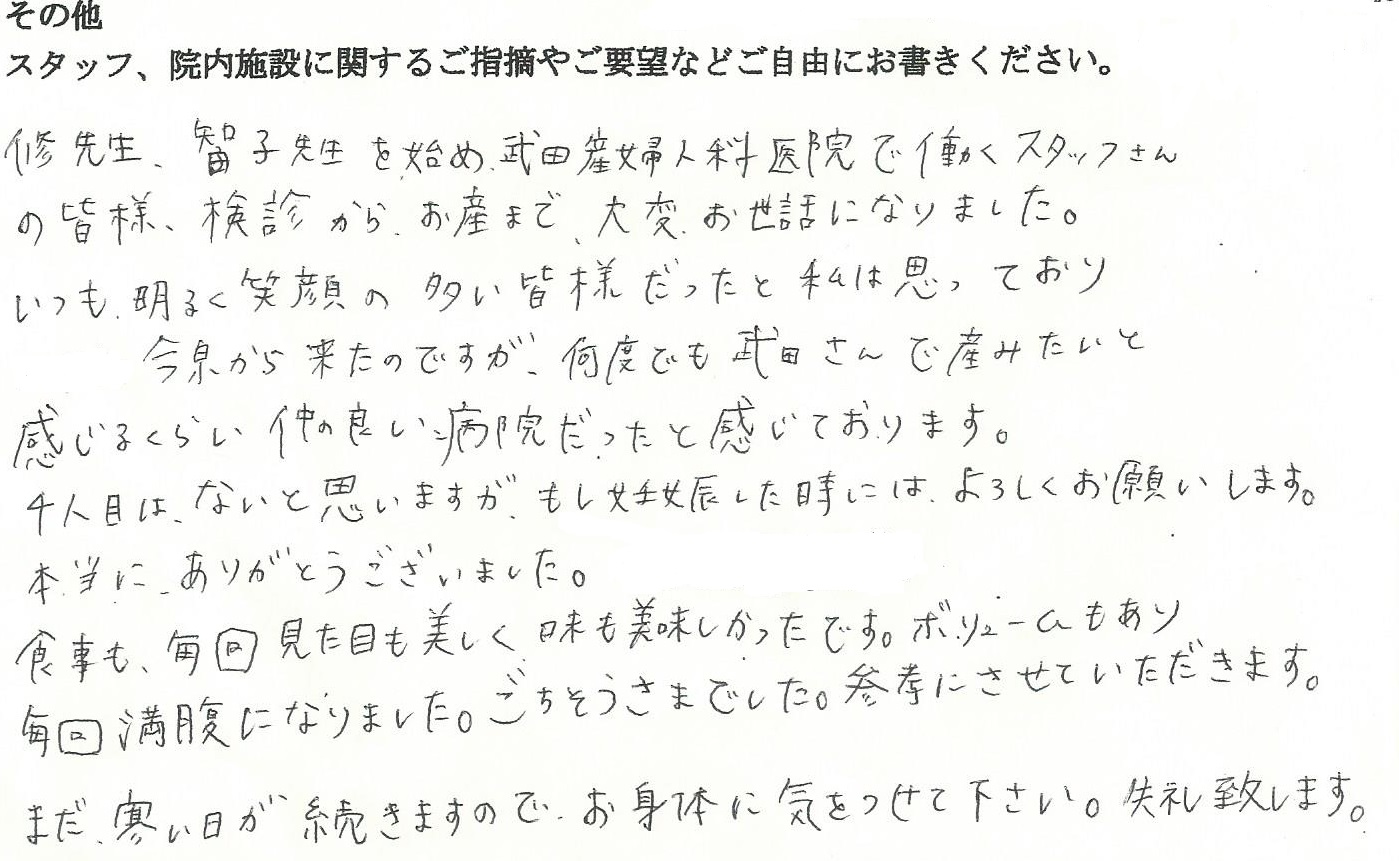 その他
スタッフ、院内施設に関するご指摘やご要望などご自由にお書きください。
修先生、智子先生を始め、武田産婦人科医院で働くスタッフさん
の皆様、検診から、お産まで、大変、お世話になりました。
いつも、明るく笑顔の多い皆様だったと私は思っており
今泉から来たのですが、何度でも武田さんで産みたいと
感じるくらい仲の良い病院だったと感じております。
4人目は、ないと思いますが、もし妊娠した時には、よろしくお願いします。
本当に、ありがとうございました。
食事も、毎回見た目も美しく味も美味しかったです。ボリュームもあり
毎回満腹になりました。ごちそうさまでした。参考にさせていただきます。
まだ、寒い日が続きますので、お身体に気をつけて下さい。失礼致します。